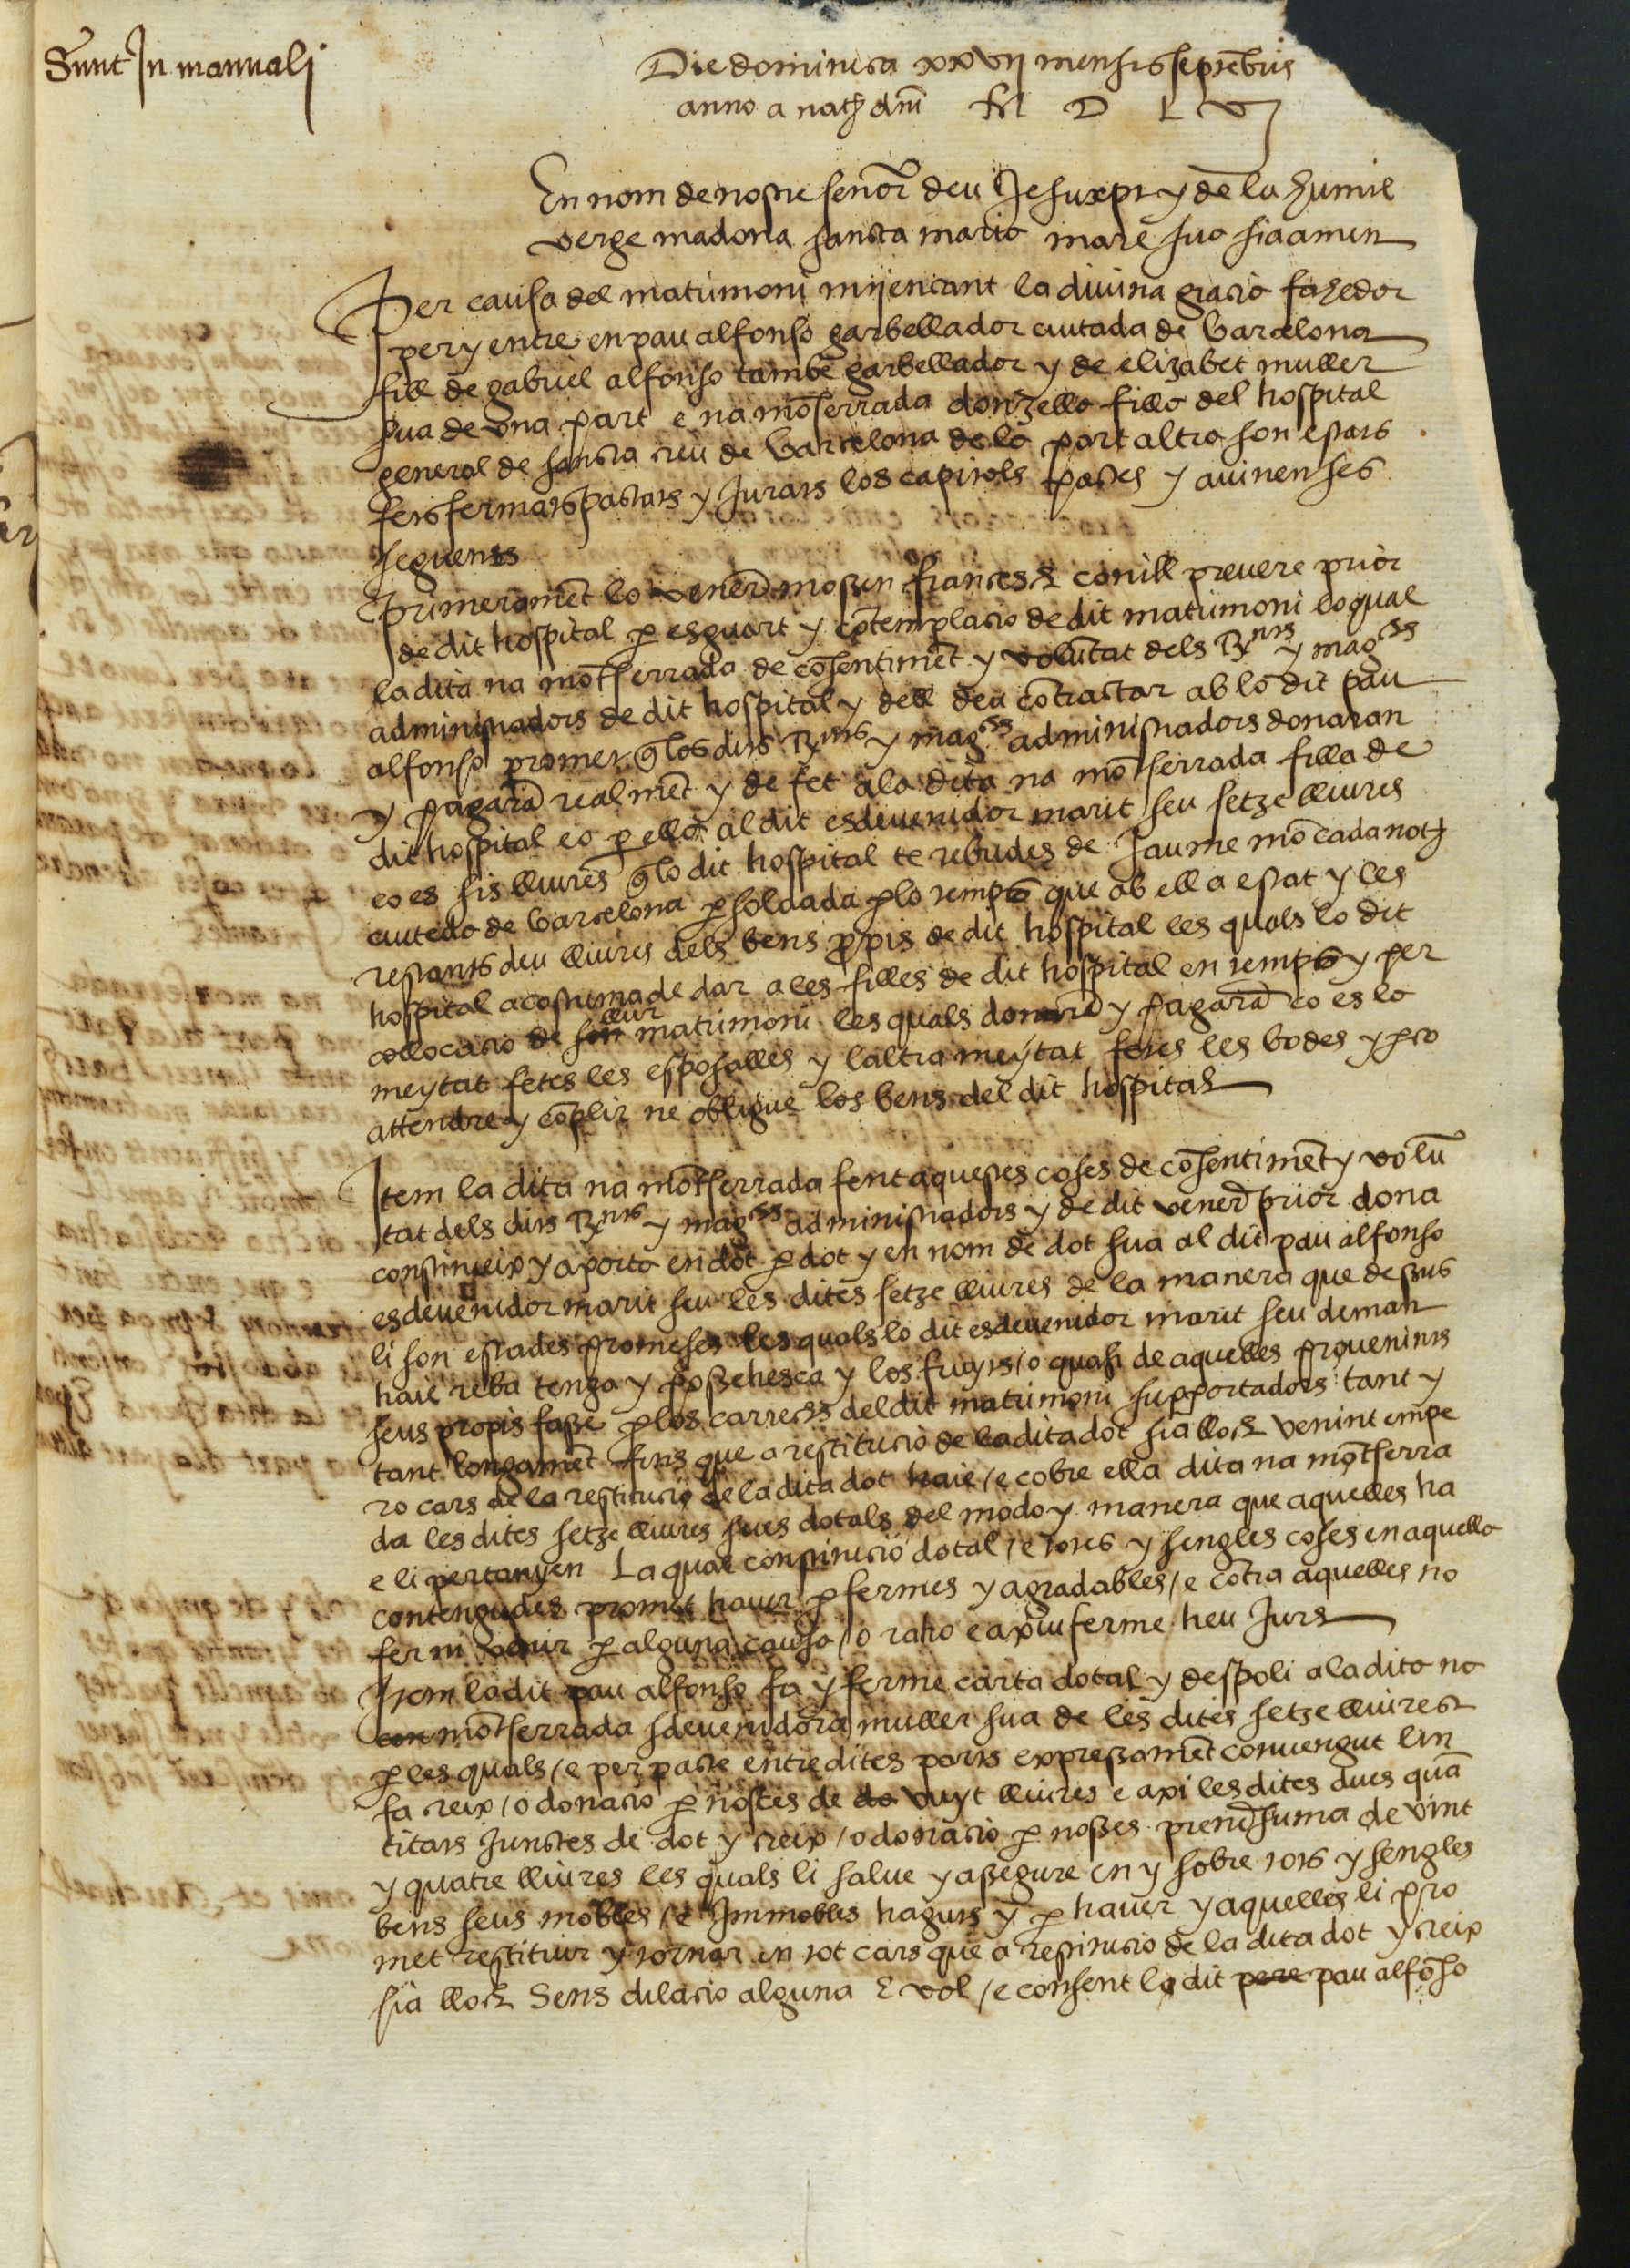 Sunt In manuali
Die dominica xxvij mensis septebris
anno a natj dni M D L V
En nom de nostre senor deu Jesuxpt y de la humil
verge madona sancta maria mare sua sia amen
Per causa del matrimoni mijencant la diuina gracia fahedor
per y entre en pau alfonso garbellador ciutada de barcelona
fill de gabriel alfonso tambe garbellador y de elizabet muller
sua de vna part e na motserrada donzella filla del hospital
general de sancta creu de barcelona de la part altra son estats
fets fermats pactats y Jurats los capitols pactes y auinenses
seguents
Primeramet lo venerd mossen francesch conill preuere prior
de dit hospital p esguart y cotemplacio de dit matrimoni lo qual
la dita na motserrada de cosentimet y volutat dels Rnts y magchs
administradors de dit hospital y dell deu cotractar ab lo dit pau
alfonso promet q los dits Rnts y magchs administradors donaran
y pagara realmet y de fet a la dita na motserrada filla de
dit hospital eo p ella al dit esdeuenidor marit seu setze lliures
ço es sis lliures q lo dit hospital te rebudes de Jaume mocada notj
ciuteda de barcelona p soldada p lo temps que ab ell a estat y les
restants deu lliures dels bens propis de dit hospital les quals lo dit
hospital acostuma de dar a les filles de dit hospital en temps y per
collocacio de son llur matrimoni les quals donara y pagara ço es la
meytat fetes les esposalles y laltra meytat fetes les bodes y p ço
attendre y coplir ne obligue los bens del dit hospital
Item la dita na motserrada fent aquestes coses de cosentimet y volu
tat dels dits Rnts y magchs administradors y de dit venerd prior dona
constitueix y aporta en dot p dot y en nom de dot sua al dit pau alfonso
esdeuenidor marit seu les dites setze lliures de la manera que dessus
li son estades promeses les quals lo dit esdeuenidor marit seu deman
haie reba tenga y possehesca y los fruyts / o quasi de aquelles prouenints
seus propis fasse p los carrechs del dit matrimoni supportadors tant y
tant longamet fins que a restitucio de la dita dot sia lloch venint empe
ro cars de la restitucio de la dita dot haie / e cobre ella dita na motserra
da les dites setze lliures sues dotals del modo y manera que aquelles ha
e li pertanyen La qual constitucio dotal / e totes y sengles coses en aquella
contengudes promet hauer p fermes y agradables / e cotra aquelles no
fer ni venir p alguna causa / o raho e axiu ferme heu Jura
Item lo dit pau alfonso fa y ferme carta dotal y despoli a la dita na
con motserrada sdeuenidora muller sua de les dites setze lliures
p les quals / e per pacte entre dites parts expressamet conuengut lin
fa creix / o donacio p noces de do vuyt lliures e axi les dites dues qua
titats Junctes de dot y creix / o donacio p nosses prend suma de vint
y quatre lliures les quals li salue y assegure en y sobre tots y sengles
bens seus mobles / e Immobles haguts y p hauer y aquelles li pro
met restituir y tornar en tot cars que a restitucio de la dita dot y creix
sia lloch Sens dilacio alguna E vol / e consent lo dit pere pau alfoso